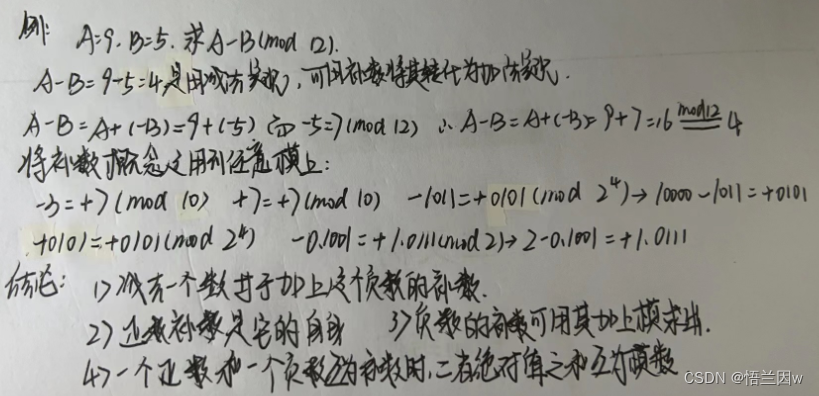 例: A=9, B=5. 求 A-B(mod 12).
A-B=9-5=4是用减法实现, 可用补数将其转化为加法实现.
A-B=A+(-B)=9+(-5) 而 -5=7(mod 12) ∴ A-B=A+(-B)=9+7=16 mod12 4
将补数概念应用到任意模上:
-3=+7(mod 10) +7=+7(mod 10) -1011=+0101(mod 2⁴)→10000-1011=+0101
+0101=+0101(mod 2⁴) -0.1001=+1.0111(mod 2)→2-0.1001=+1.0111
结论: 1>减去一个数等于加上这个负数的补数.
2>正数补数是它的自身 3>负数的补数可用其加上模求出.
4>一个正数和一个负数互为补数时,二者绝对值之和互为模数
CSDN @悟兰因w